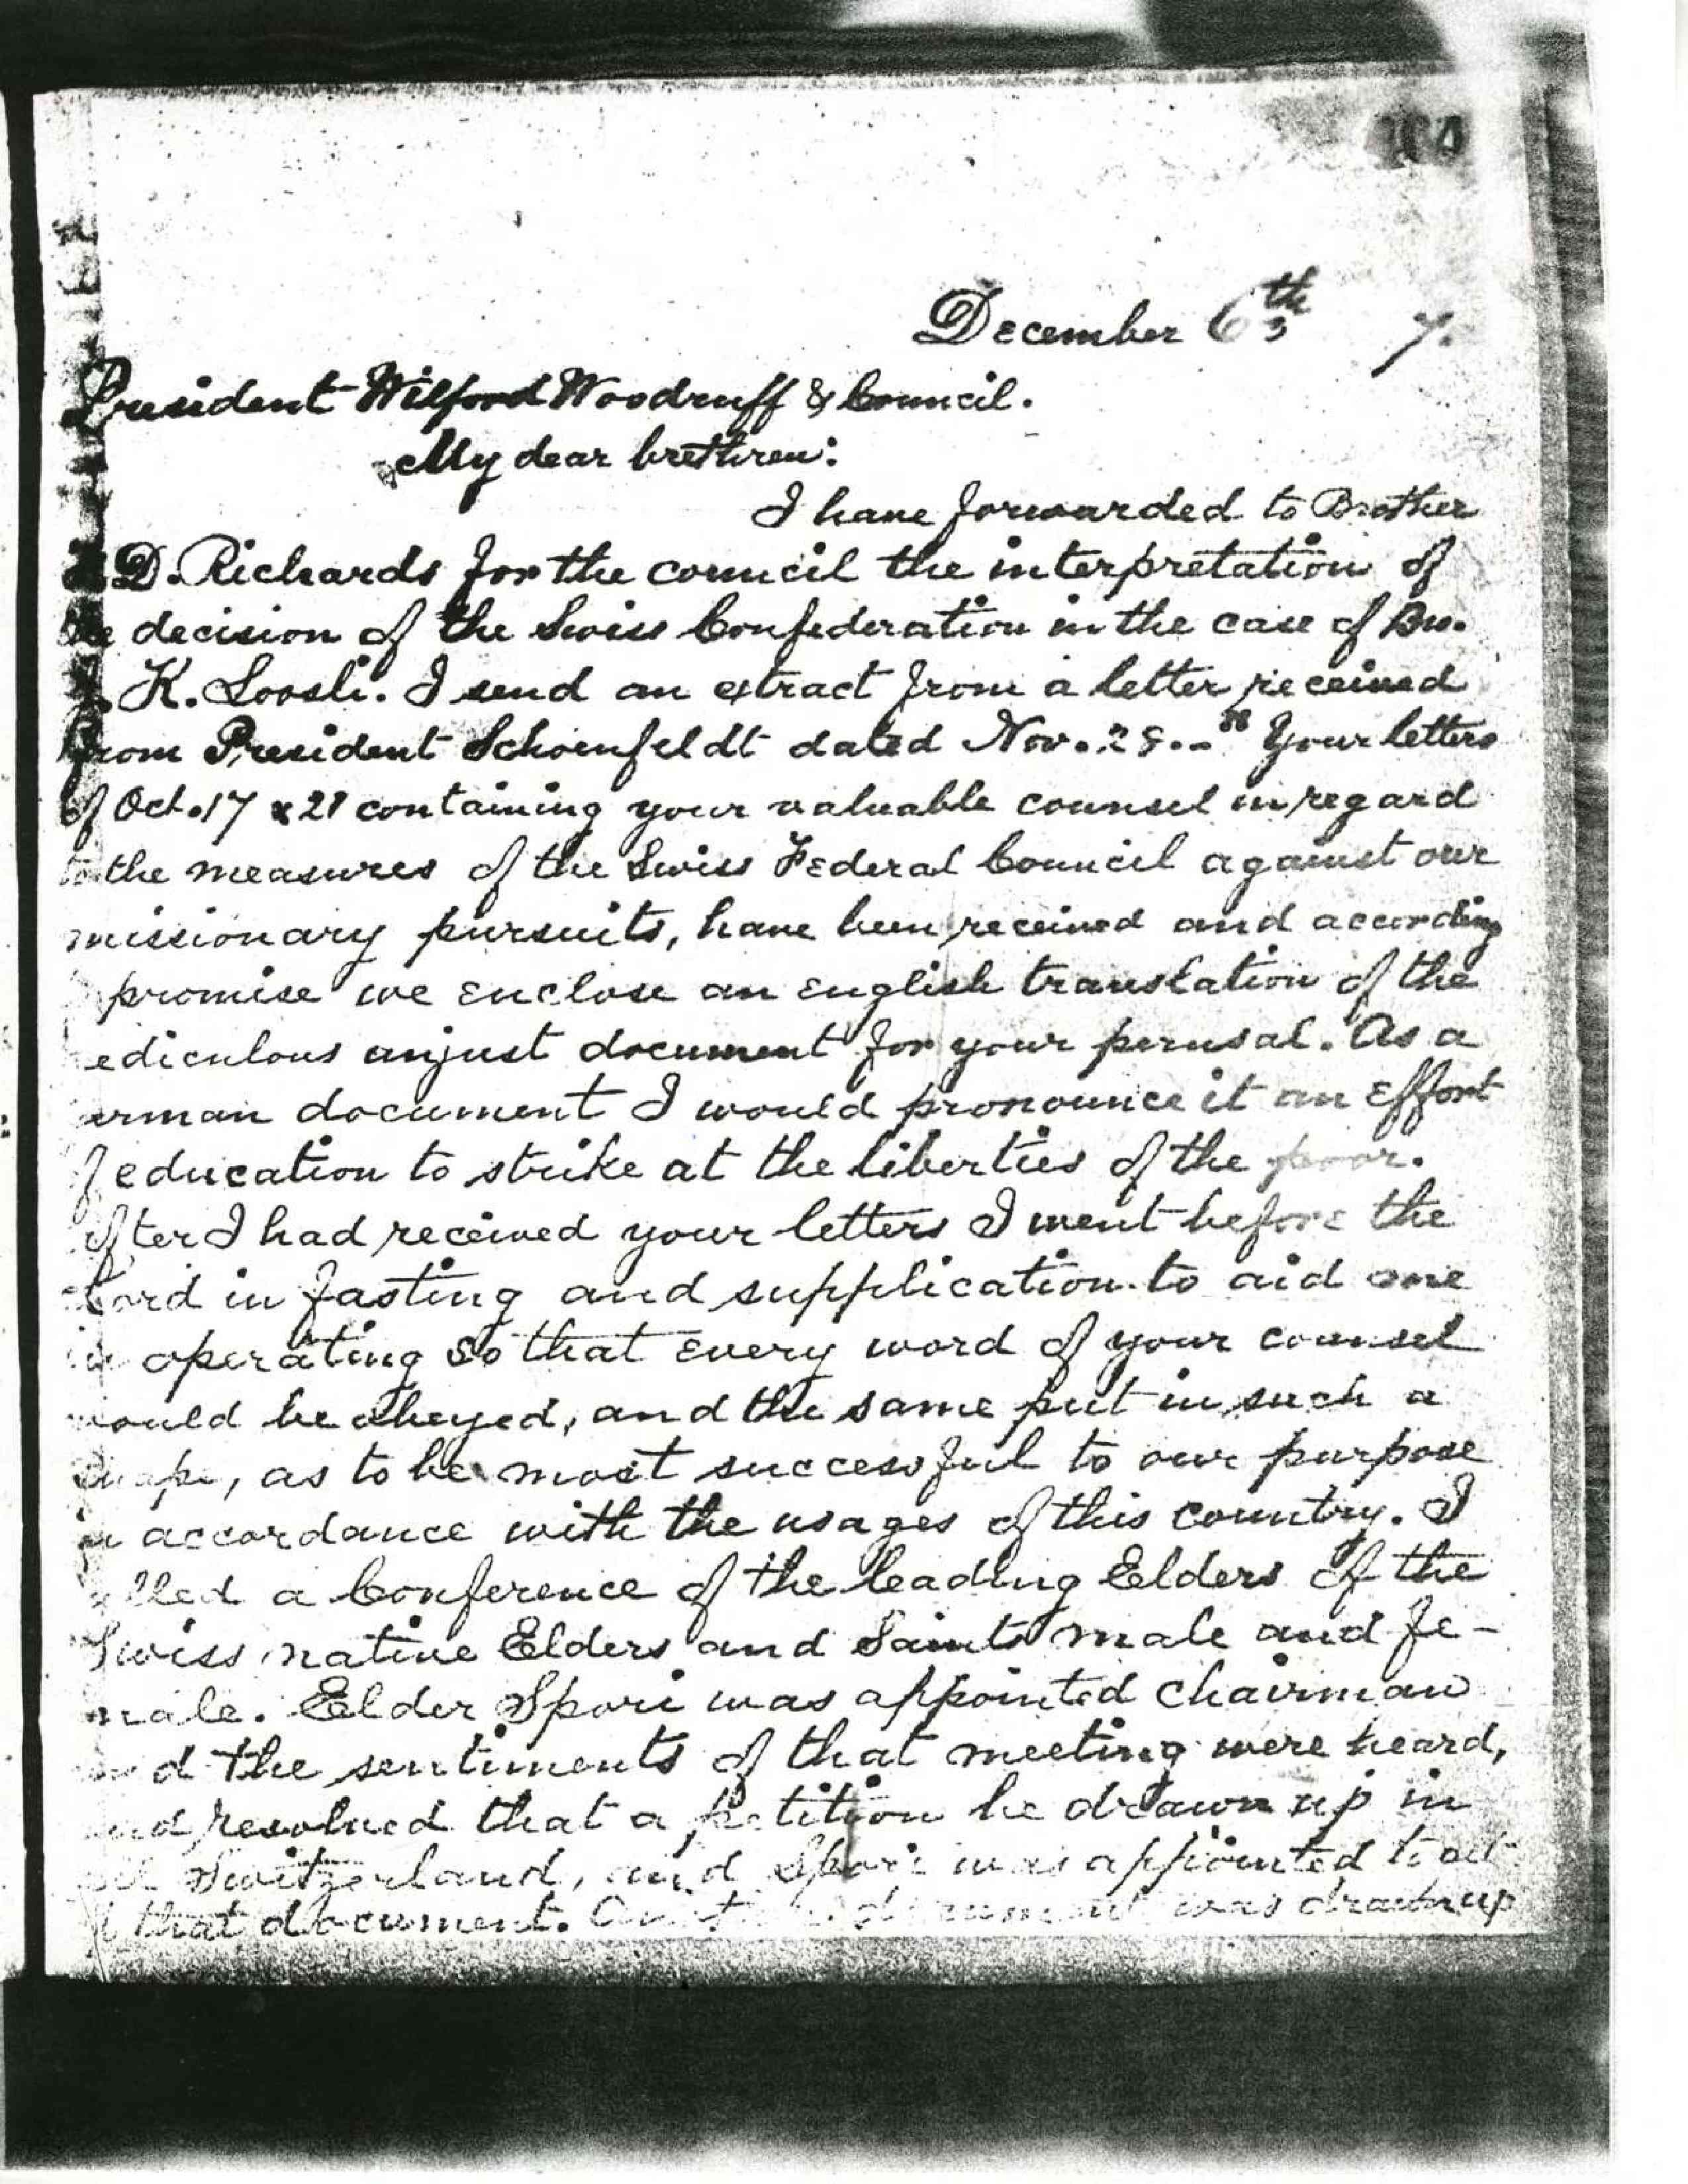 December 6th 7.
President Wilford Woodruff & Council.
My dear brethren:
I have forwarded to Brother
D. Richards for the council the interpretation of
the decision of the Swiss Confederation in the case of Bro.
K. Loosli. I send an extract from a letter received
from President Schoenfeldt dated Nov. 28.–" Your letters
of Oct. 17 & 21 containing your valuable counsel in regard
to the measures of the Swiss Federal Council against our
missionary pursuits, have been received and according
promise we enclose an english translation of the
ediculous unjust document for your perusal. As a
erman document I would pronounce it an effort
f education to strike at the liberties of the poor.
fter I had received your letters I went before the
Lord in fasting and supplication to aid me
in operating so that every word of your counsel
would be obeyed, and the same put in such a
shape, as to be most successful to our purpose
in accordance with the usages of this country. I
lled a Conference of the leading Elders of the
Swiss native Elders and Saints male and fe-
male. Elder Spori was appointed chairman
nd the sentiments of that meeting were heard,
nd resolved that a petition be drawn up in
Switzerland, and Spori was appointed to
that document. document was drawn up